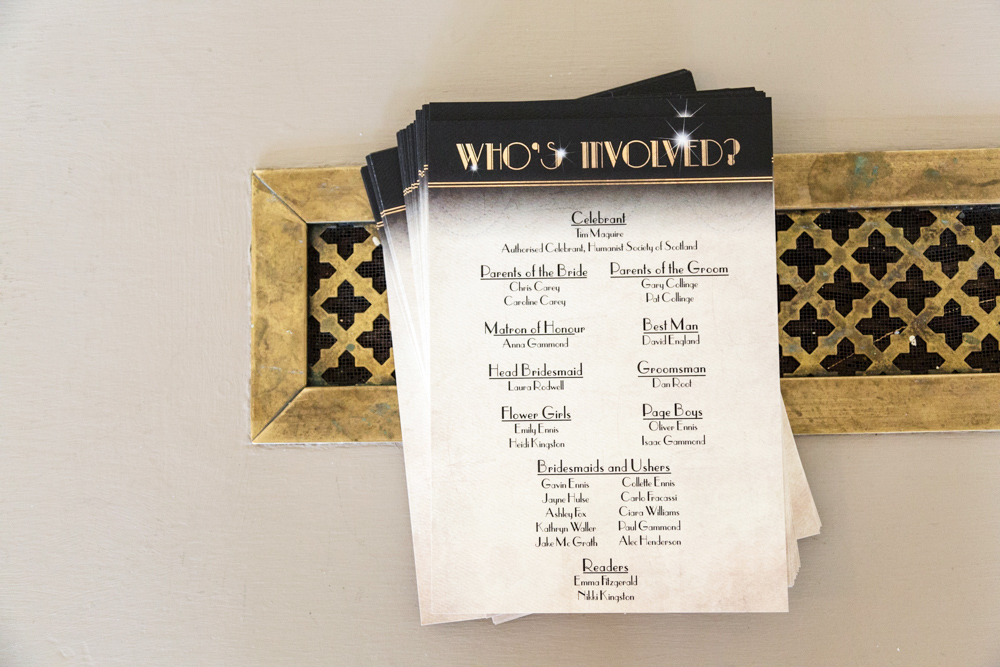 WHO'S INVOLVED?
Celebrant
Tim Maguire
Authorised Celebrant, Humanist Society of Scotland
Parents of the Bride
Chris Carey
Caroline Carey
Parents of the Groom
Gary Collinge
Pat Collinge
Matron of Honour
Anna Gammond
Best Man
David England
Head Bridesmaid
Laura Rodwell
Groomsman
Dan Root
Flower Girls
Emily Ennis
Heidi Kingston
Page Boys
Oliver Ennis
Isaac Gammond
Bridesmaids and Ushers
Gavin Ennis
Jayne Hulse
Ashley Fox
Kathryn Waller
Jake Mc Grath
Collette Ennis
Carlo Fracassi
Ciara Williams
Paul Gammond
Alec Henderson
Readers
Emma Fitzgerald
Nikki Kingston